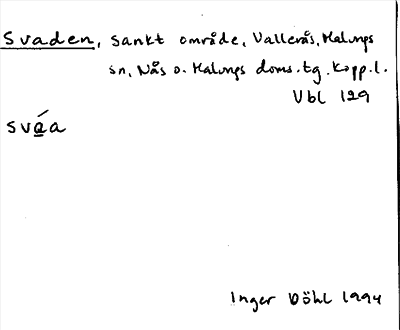 Svaden, Sankt område, Vallerås, Malungs
sn, Nås o. Malungs doms.tg. Kopp.l.
Vbl 129
sváa
Inger Döhl 1994